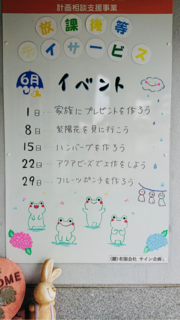 計画相談支援事業
放課後等
デイサービス
6月
イベント
1日…家族にプレゼントを作ろう
8日…紫陽花を見に行こう
15日…ハンバーグを作ろう
22日…アクアビーズで工作をしよう
29日…フルーツポンチを作ろう
有限会社 サイン企画
OME